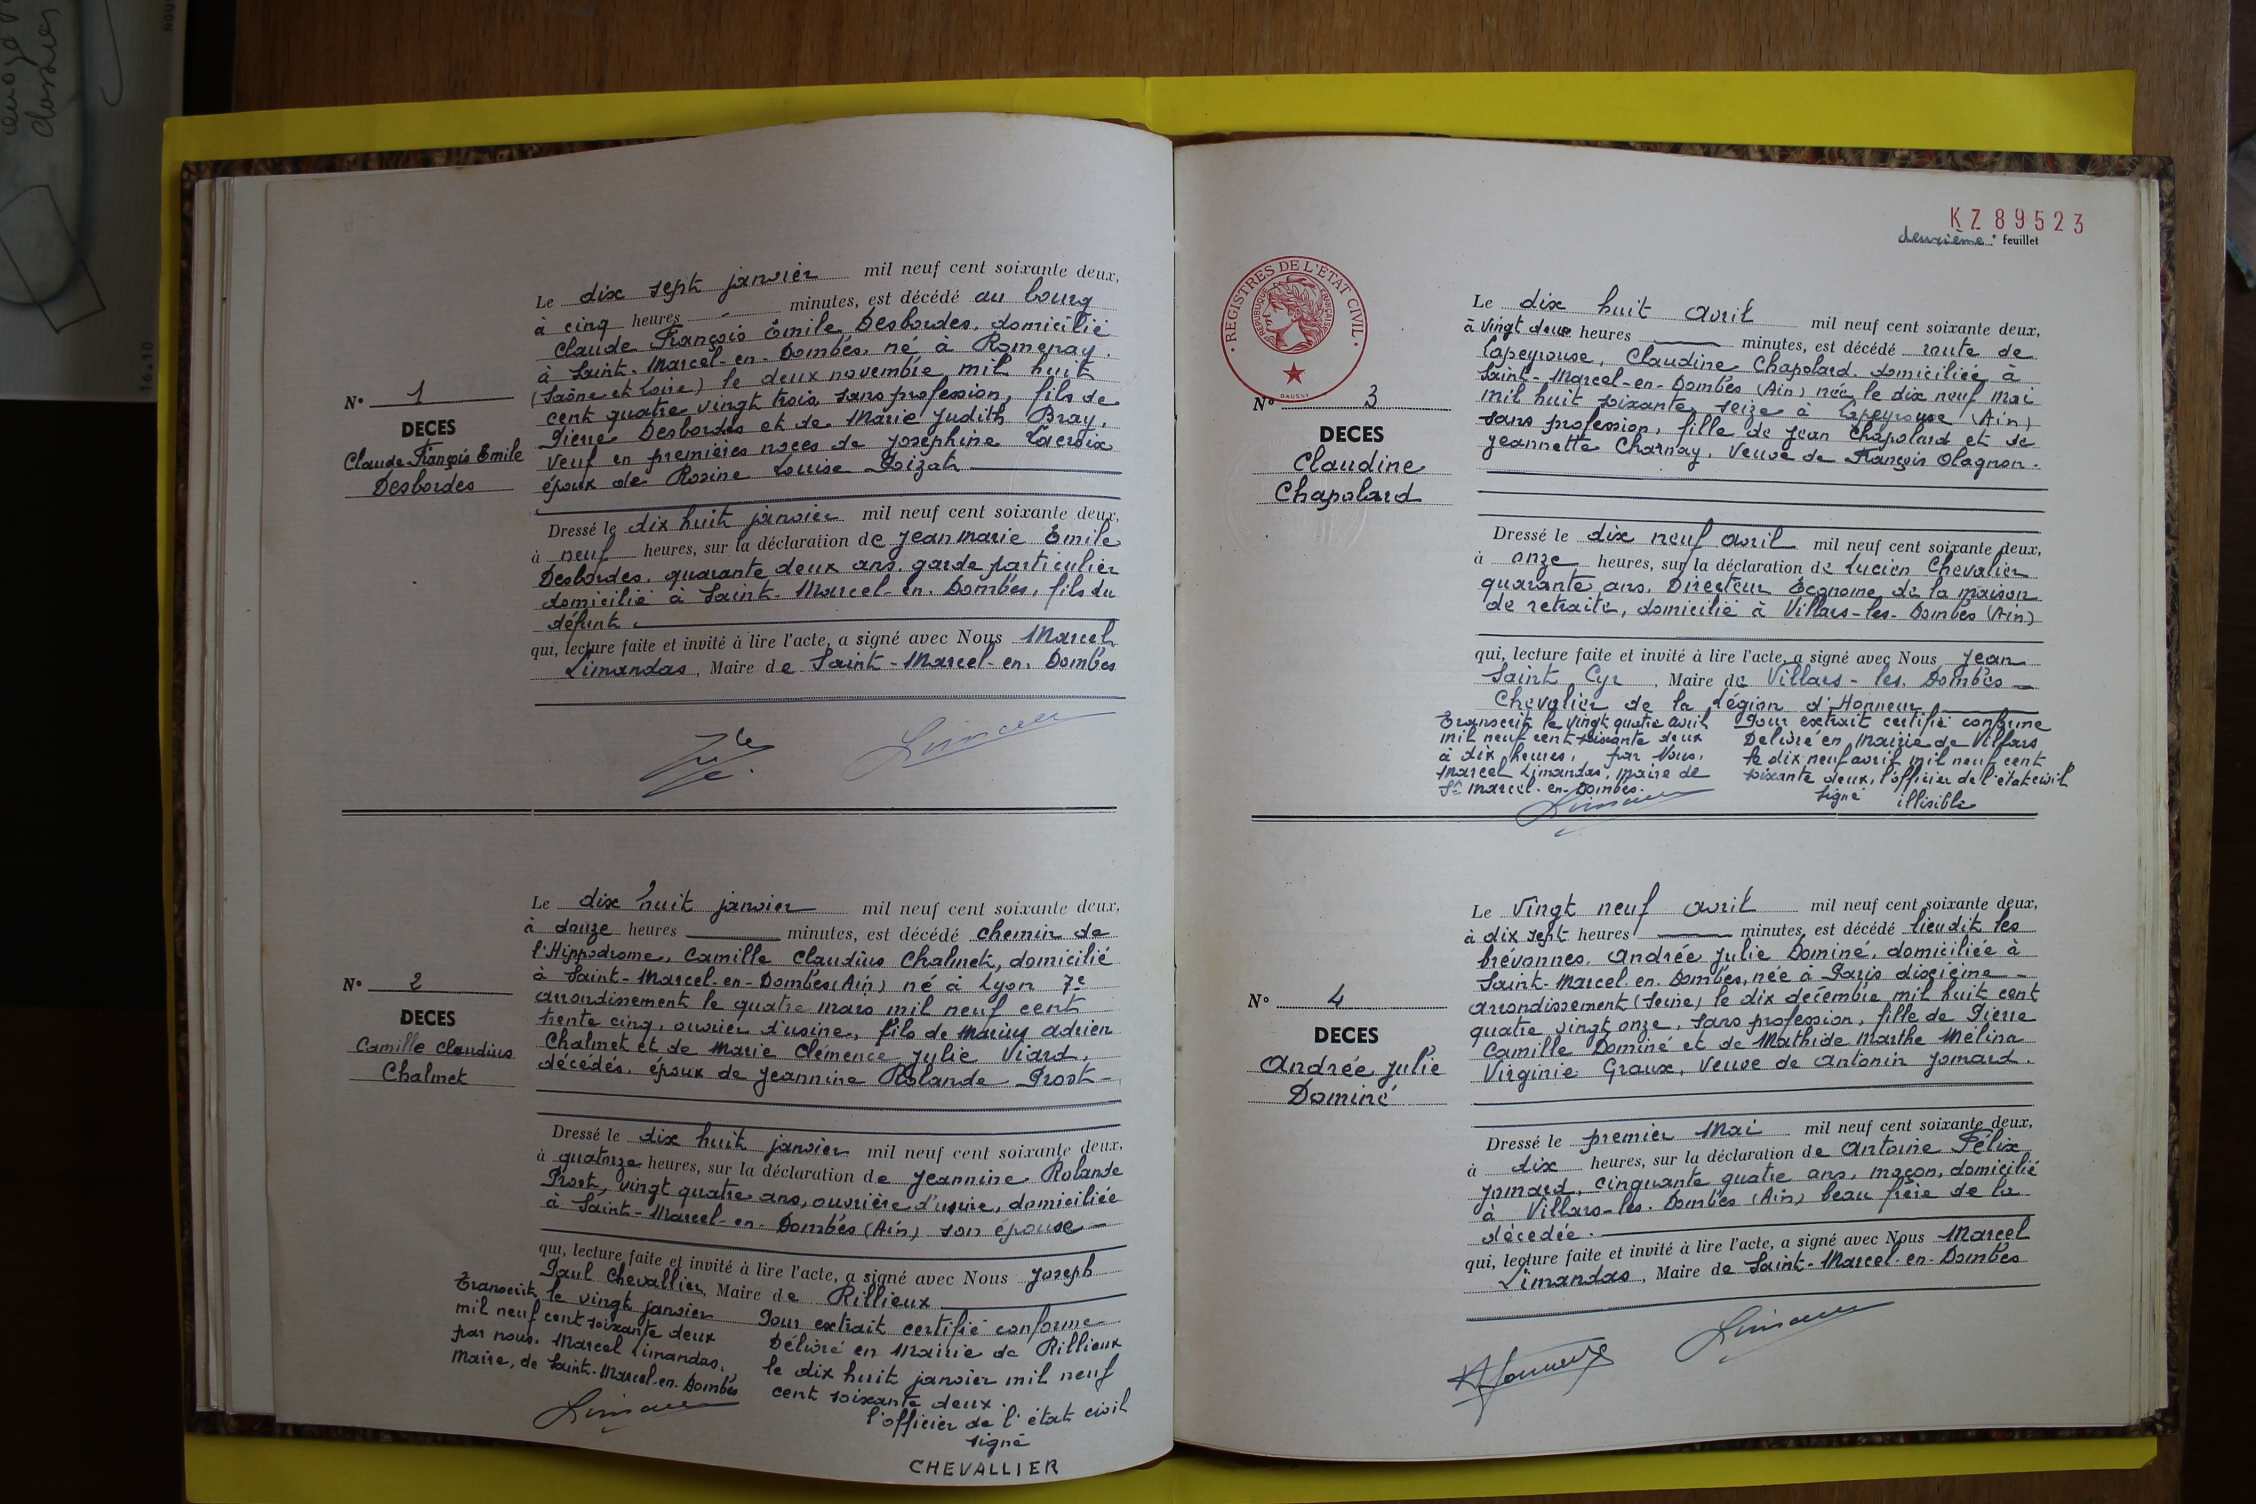 N° 1
DECES
Claude François Emile
Desbordes
Le dix sept janvier mil neuf cent soixante deux,
à cinq heures - minutes, est décédé au bourg
Claude François Emile Desbordes. domicilié
à Saint-Marcel-en-Dombes. né à Romenay.
(Saône et Loire) le deux novembre mil huit
cent quatre vingt trois sans profession, fils de
Pierre Desbordes et de Marie Judith Bray.
Veuf en premières noces de Joséphine Lacroix
époux de Rosine Louise Poizat
Dressé le dix huit janvier mil neuf cent soixante deux,
à neuf heures, sur la déclaration de Jean Marie Emile
Desbordes. quarante deux ans. garde particulier
domicilié à Saint-Marcel-en-Dombes, fils du
défunt
qui, lecture faite et invité à lire l'acte, a signé avec Nous Marcel
Limandas, Maire de Saint-Marcel-en-Dombes
N° 2
DECES
Camille Claudius
Chalmet
Le dix huit janvier mil neuf cent soixante deux,
à douze heures minutes, est décédé chemin de
l'Hippodrome, Camille Claudius Chalmet, domicilié
à Saint-Marcel-en-Dombes (Ain) né à Lyon 7e
arrondissement le quatre mars mil neuf cent
trente cinq, ouvrier d'usine, fils de Marius Adrien
Chalmet et de Marie Clémence Julie Viard,
décédés. époux de Jeannine Rolande Prost-
Dressé le dix huit janvier mil neuf cent soixante deux,
à quatorze heures, sur la déclaration de Jeannine Rolande
Prost, vingt quatre ans, ouvrière d'usine, domiciliée
à Saint-Marcel-en-Dombes (Ain) son épouse-
qui, lecture faite et invité à lire l'acte, a signé avec Nous Joseph
Paul Chevallier, Maire de Rillieux
Transcrit le vingt janvier
mil neuf cent soixante deux
par nous. Marcel Limandas,
Maire, de Saint-Marcel-en-Dombes
Pour extrait certifié conforme
Délivré en Mairie de Rillieux
le dix huit janvier mil neuf
cent soixante deux.
l'officier de l'état civil
signé
CHEVALLIER
KZ 89523
deuxième feuillet
REGISTRES DE L'ÉTAT CIVIL
RÉPUBLIQUE FRANÇAISE
N° 3
DECES
Claudine
Chapolard
Le dix huit avril mil neuf cent soixante deux,
à vingt deux heures minutes, est décédé route de
Lapeyrouse, Claudine Chapolard. domiciliée à
Saint-Marcel-en-Dombes (Ain) née le dix neuf mai
mil huit soixante seize à Lapeyrouse (Ain)
sans profession, fille de Jean Chapolard et de
Jeannette Charnay. Veuve de François Olagnon.
Dressé le dix neuf avril mil neuf cent soixante deux,
à onze heures, sur la déclaration de Lucien Chevalier
quarante ans. Directeur Econome de la maison
de retraite, domicilié à Villars-les-Dombes (Ain)
qui, lecture faite et invité à lire l'acte, a signé avec Nous Jean
Saint Cyr, Maire de Villars-les-Dombes-
Chevalier de la Légion d'Honneur
Transcrit le vingt quatre avril
mil neuf cent soixante deux
à dix heures, par Nous,
Marcel Limandas, maire de
St Marcel-en-Dombes.
Pour extrait certifié conforme
Délivré en Mairie de Villars
le dix neuf avril mil neuf cent
soixante deux, l'officier de l'état civil
signé illisible
N° 4
DECES
Andrée Julie
Dominé
Le vingt neuf avril mil neuf cent soixante deux,
à dix sept heures minutes, est décédé lieudit les
brévonnes. Andrée Julie Dominé, domiciliée à
Saint-Marcel-en-Dombes, née à Paris dixième-
arrondissement (Seine) le dix décembre mil huit cent
quatre vingt onze, sans profession, fille de Pierre
Camille Dominé et de Mathide Marthe Mélina
Virginie Graux, Veuve de Antonin Jomard.
Dressé le premier Mai mil neuf cent soixante deux,
à dix heures, sur la déclaration de Antoine Félix
Jomard, cinquante quatre ans, maçon, domicilié
à Villars-les-Dombes (Ain) beau frère de la
décédée.
qui, lecture faite et invité à lire l'acte, a signé avec Nous Marcel
Limandas, Maire de Saint-Marcel-en-Dombes